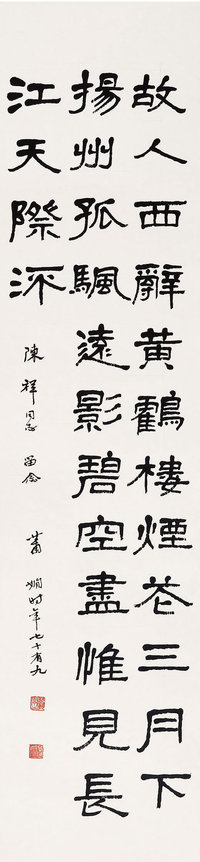 故人西辭黄鶴樓煙花三月下
揚州孤颿遠影碧空盡惟見長
江天際流
陳祥同志 留念 蕭嫻时年七十有九